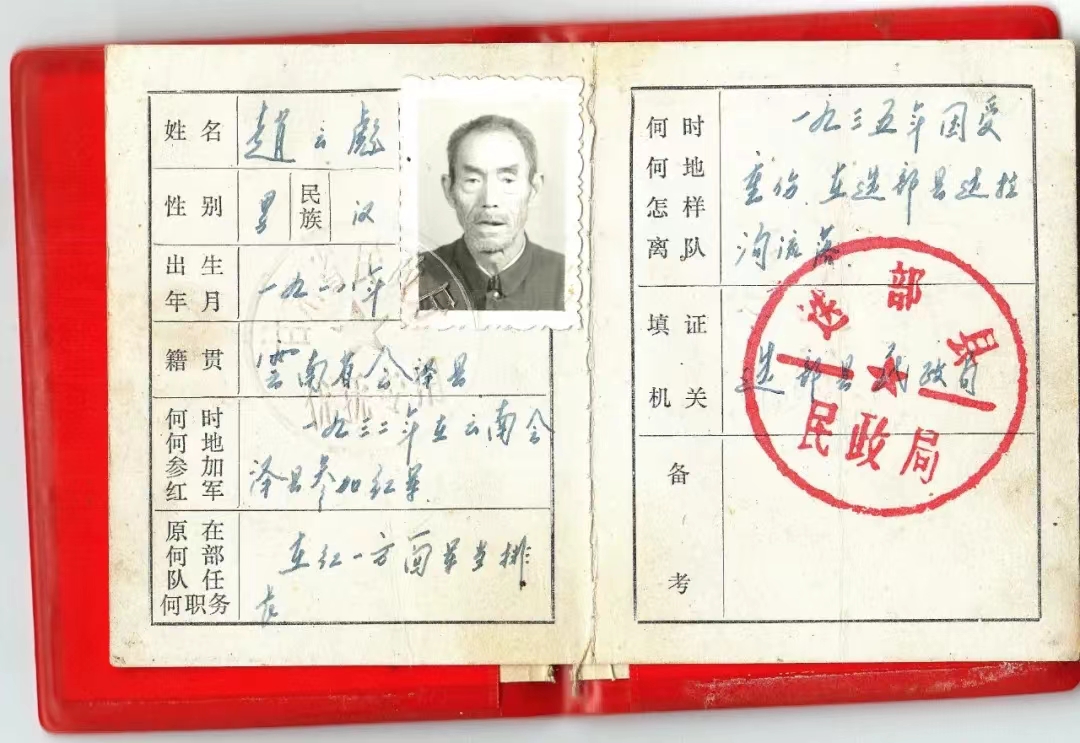 姓名 趙云彪
性别 男 民族 汉
出生年月 一九
籍贯 雲南省会泽县
何时何地参加红军 一九三二年在云南会
泽县参加红军
原在何部队任何职务 在红一方面军当排
长
何时何地怎样离队 一九三五年因受
重伤.在迭部县达拉
沟流落
填证机关 迭部县民政局
备考
迭部县
民政局